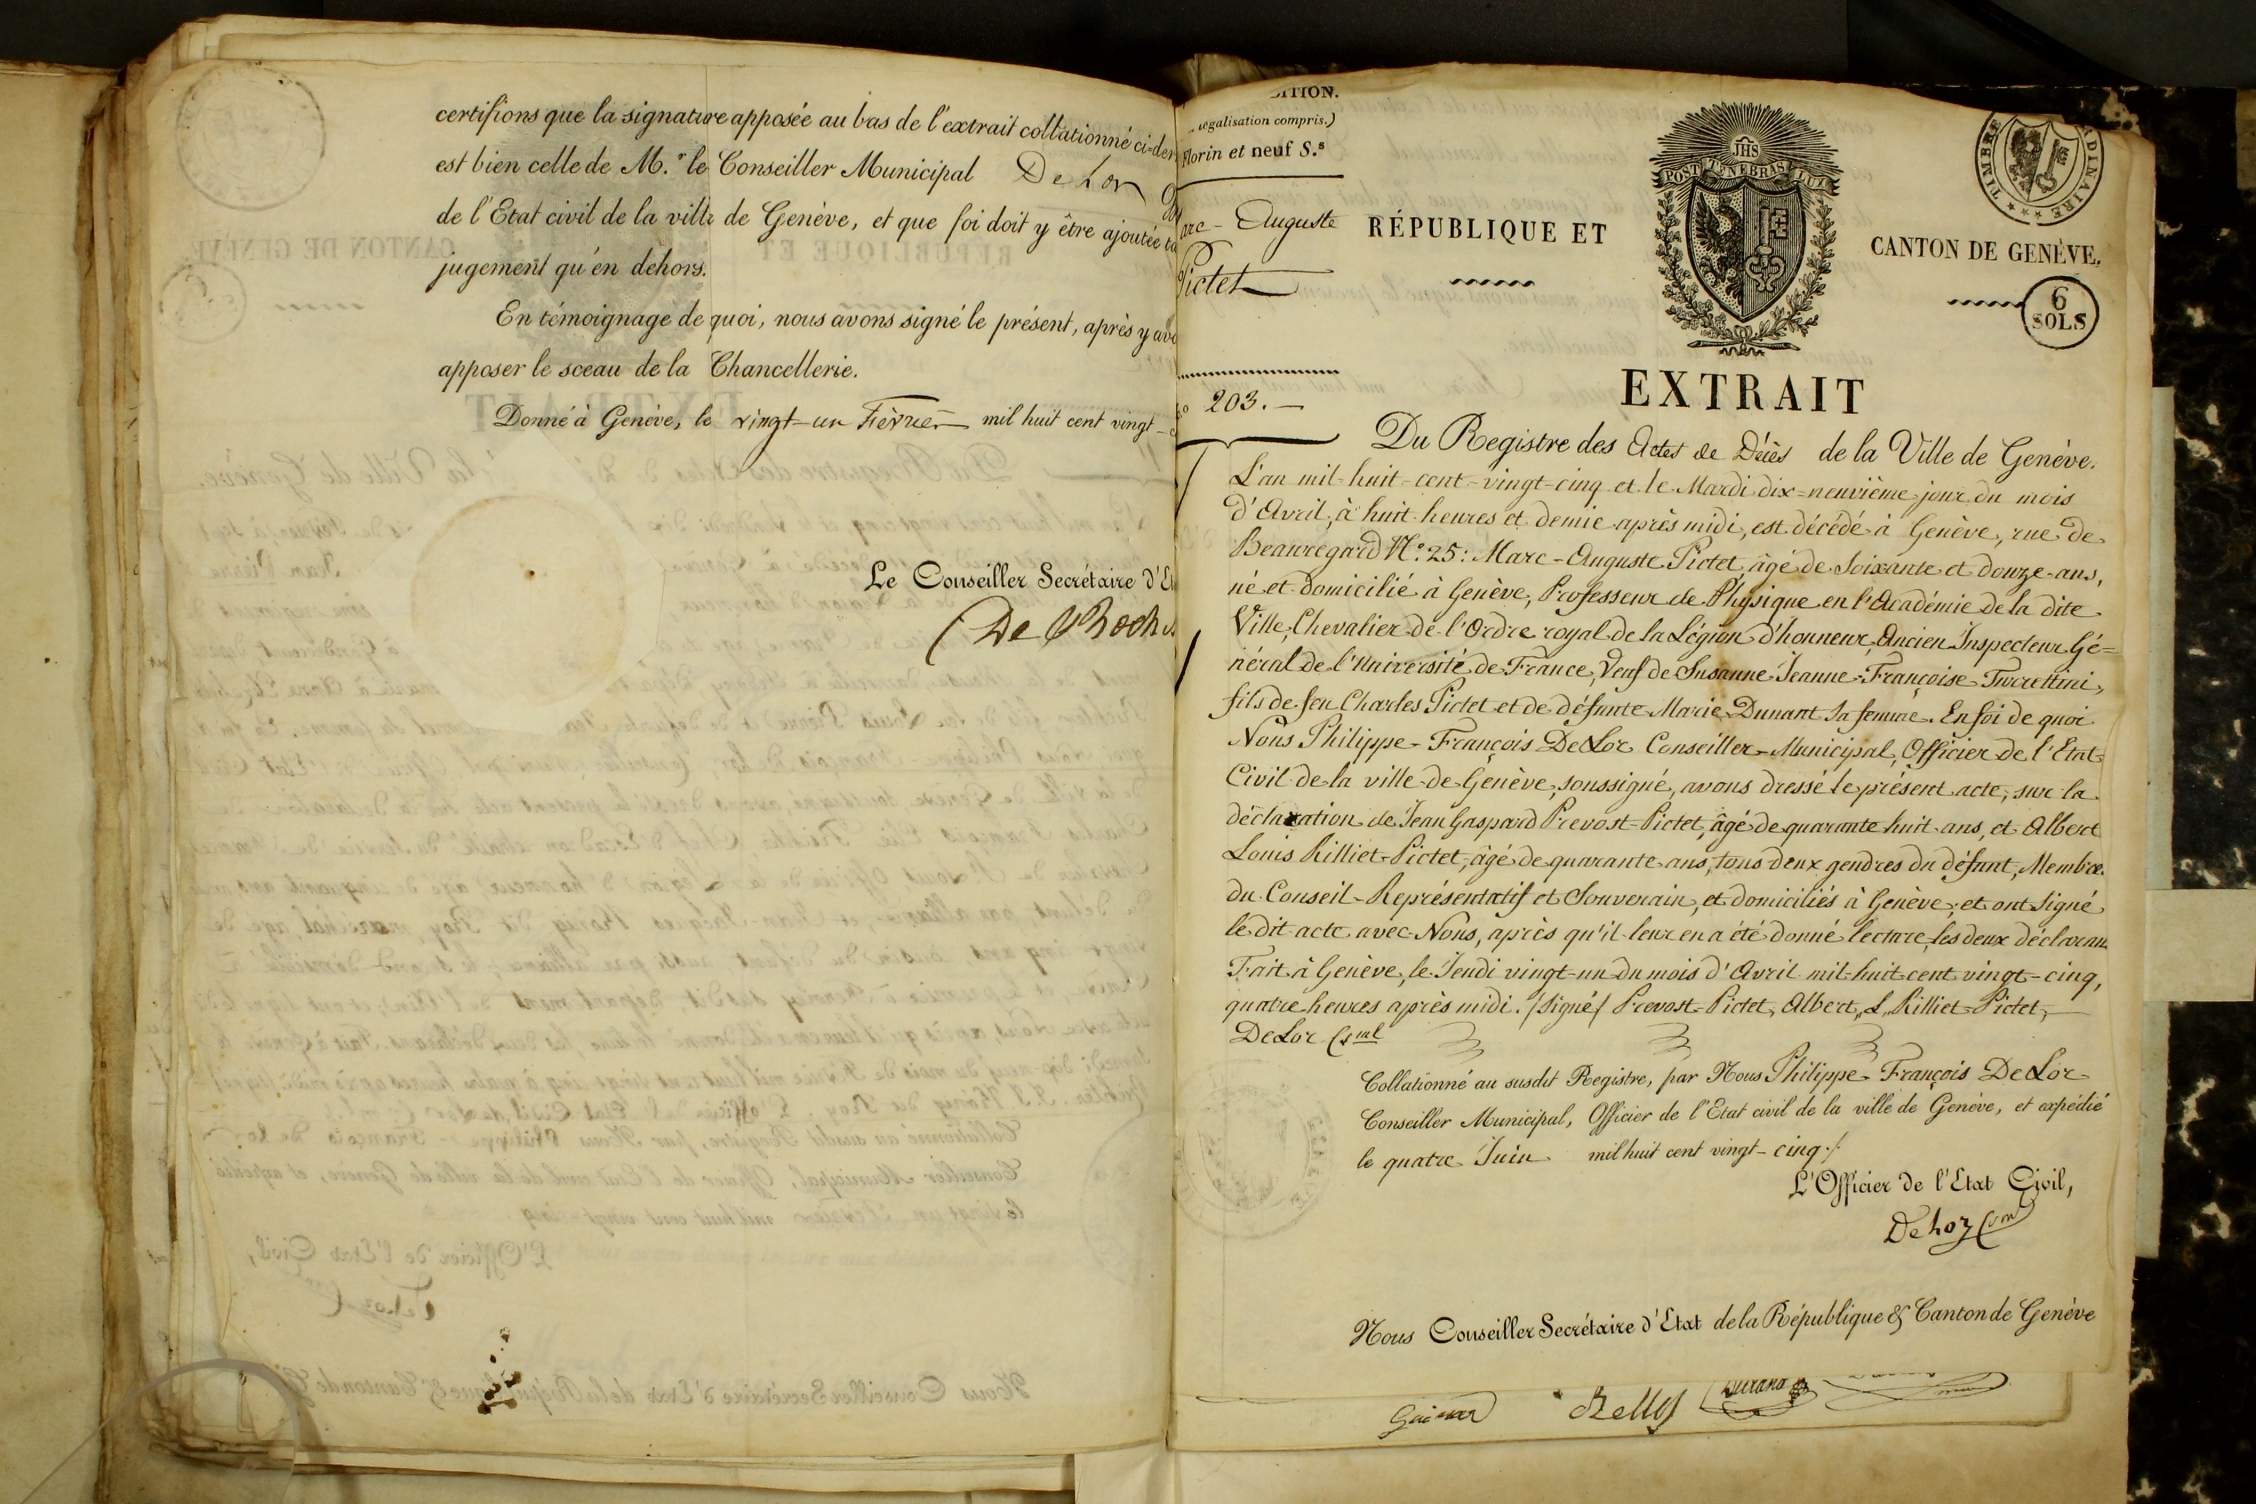 certifions que la signature apposée au bas de l'extrait collationné ci-der
est bien celle de M.r le Conseiller Municipal DeLor
de l'Etat civil de la ville de Genève, et que foi doit y être ajoutée
jugement qu'en dehors.
En témoignage de quoi, nous avons signé le présent, après y avo
apposer le sceau de la Chancellerie.
Donné à Genève, le vingt-un Février mil huit cent vingt-c
Le Conseiller Secrétaire d'Et
De Roch
ITION.
legalisation compris.)
Florin et neuf S.s
arc-Auguste
Pictet
203.
JHS
POST TENEBRAS LUX
TIMBRE
RÉPUBLIQUE ET
CANTON DE GENÈVE.
6
SOLS
EXTRAIT
Du Registre des Actes de Décès de la Ville de Genève.
L'an mil-huit-cent-vingt-cinq et le Mardi dix-neuvième jour du mois
d'Avril, à huit heures et demie après midi, est décédé à Genève, rue de
Beauregard N.º 25: Marc-Auguste Pictet, âgé de Soixante et douze ans,
né et domicilié à Genève, Professeur de Physique en l'Académie de la dite
Ville, Chevalier de l'Ordre royal de la Légion d'honneur, Ancien Inspecteur Gé=
néral de l'université de France, Veuf de Susanne Jeanne-Françoise Turrettini,
fils de feu Charles Pictet et de défunte Marie Dunant sa femme. En foi de quoi
Nous Philippe-François DeLor Conseiller-Municipal, Officier de l'Etat
Civil de la ville de Genève, soussigné, avons dressé le présent acte, sur la
déclaration de Jean Gaspard Prevost-Pictet, âgé de quarante huit ans, et Albert
Louis Rilliet-Pictet, âgé de quarante ans, tous deux gendres du défunt, Membre
du Conseil-Représentatif et Souverain, et domiciliés à Genève; et ont signé
le dit acte avec Nous, après qu'il leur en a été donné lecture, les deux déclaran
Fait à Genève, le Jeudi vingt-un du mois d'Avril mil-huit cent vingt-cinq,
quatre heures après midi. /signé/ Prevost-Pictet, Albert, L, Rilliet-Pictet,
DeLor Csml
Collationné au susdit Registre, par Nous Philippe François DeLor
Conseiller Municipal, Officier de l'Etat civil de la ville de Genève, et expédié
le quatre Juin mil huit cent vingt-cinq./.
L'Officier de l'Etat Civil,
DeLor
Nous Conseiller Secrétaire d'Etat de la République & Canton de Genève